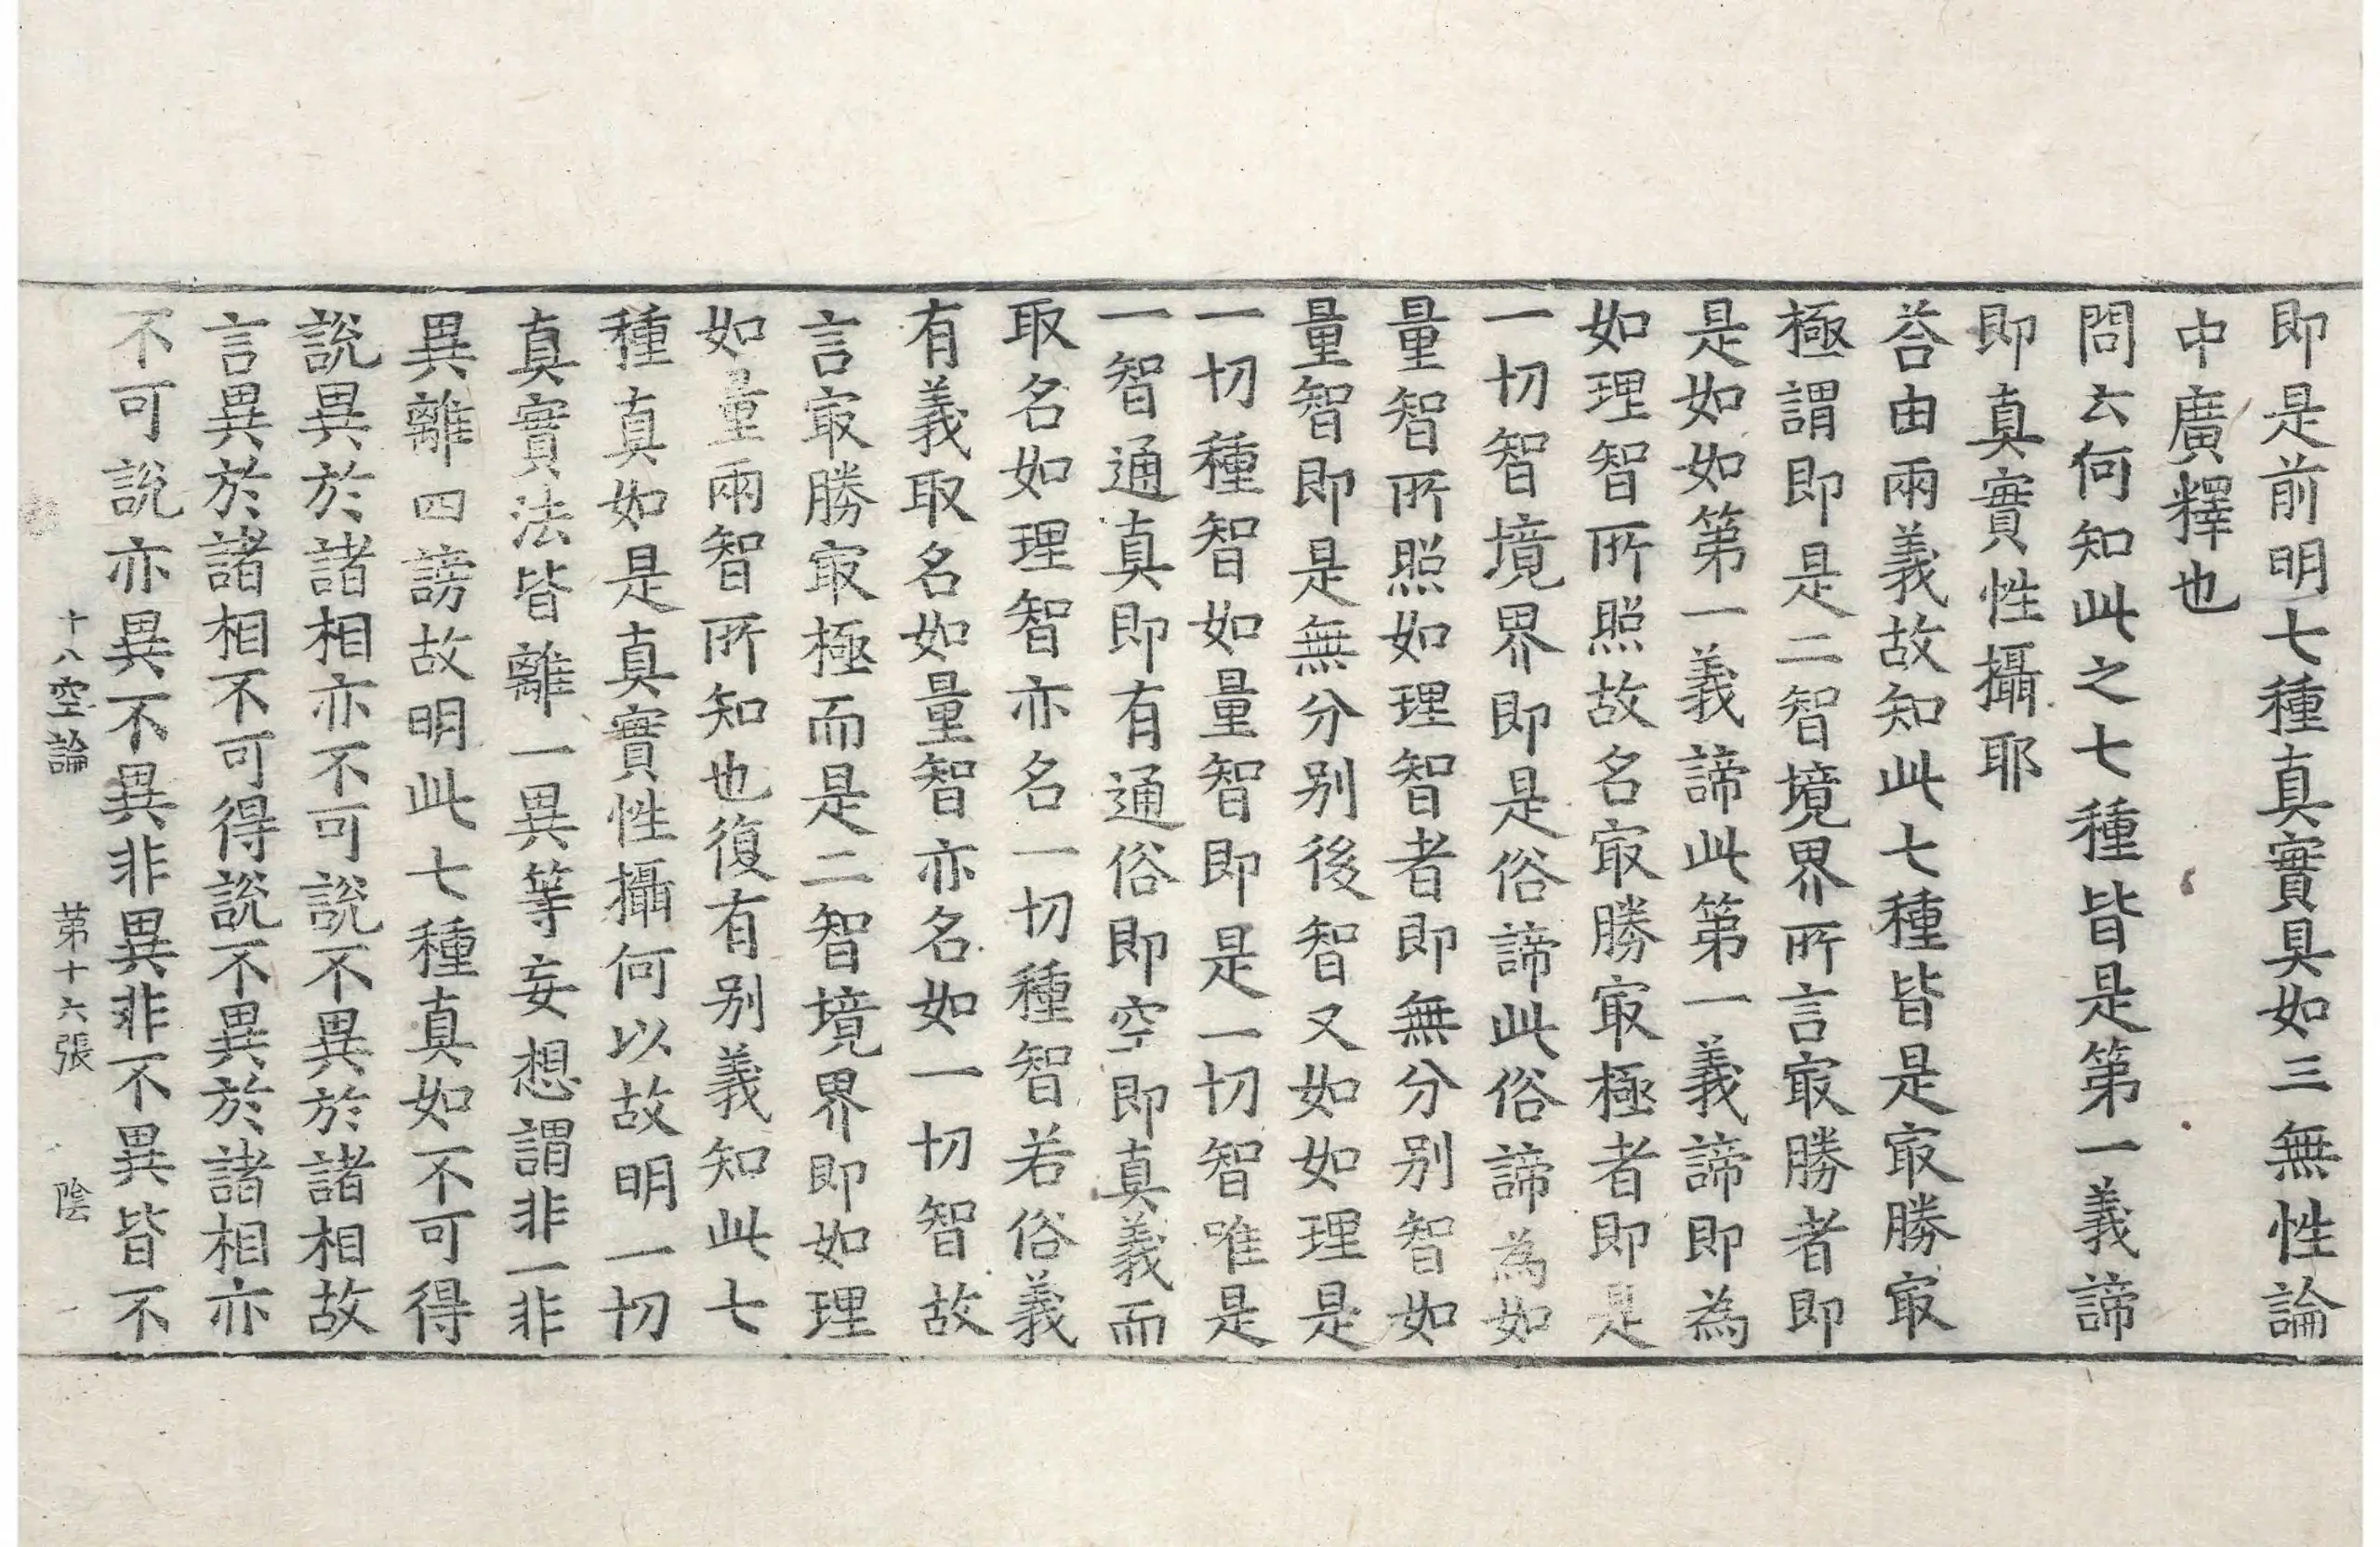 即是前明七種真實具如三無性論
中廣釋也
問云何知此之七種皆是第一義諦
即真實性攝耶
荅由兩義故知此七種皆是㝡勝㝡
極謂即是二智境界所言㝡勝者即
是如如第一義諦此第一義諦即為
如理智所照故名㝡勝㝡極者即是
一切智境界即是俗諦此俗諦為如
量智所照如理智者即無分别智如
量智即是無分别後智又如如理是
一切種智如量智即是一切智唯是
一智通真即有通俗即空即真義而
取名如理智亦名一切種智若俗義
有義取名如量智亦名如一切智故
言㝡勝㝡極而是二智境界即如理
如量兩智所知也復有别義知此七
種真如是真實性攝何以故明一切
真實法皆離一異等妄想謂非一非
異離四謗故明此七種真如不可得
說異於諸相亦不可說不異於諸相故
言異於諸相不可得說不異於諸相亦
不可說亦異不異非異非不異皆不
十八空論 第十六張 陰